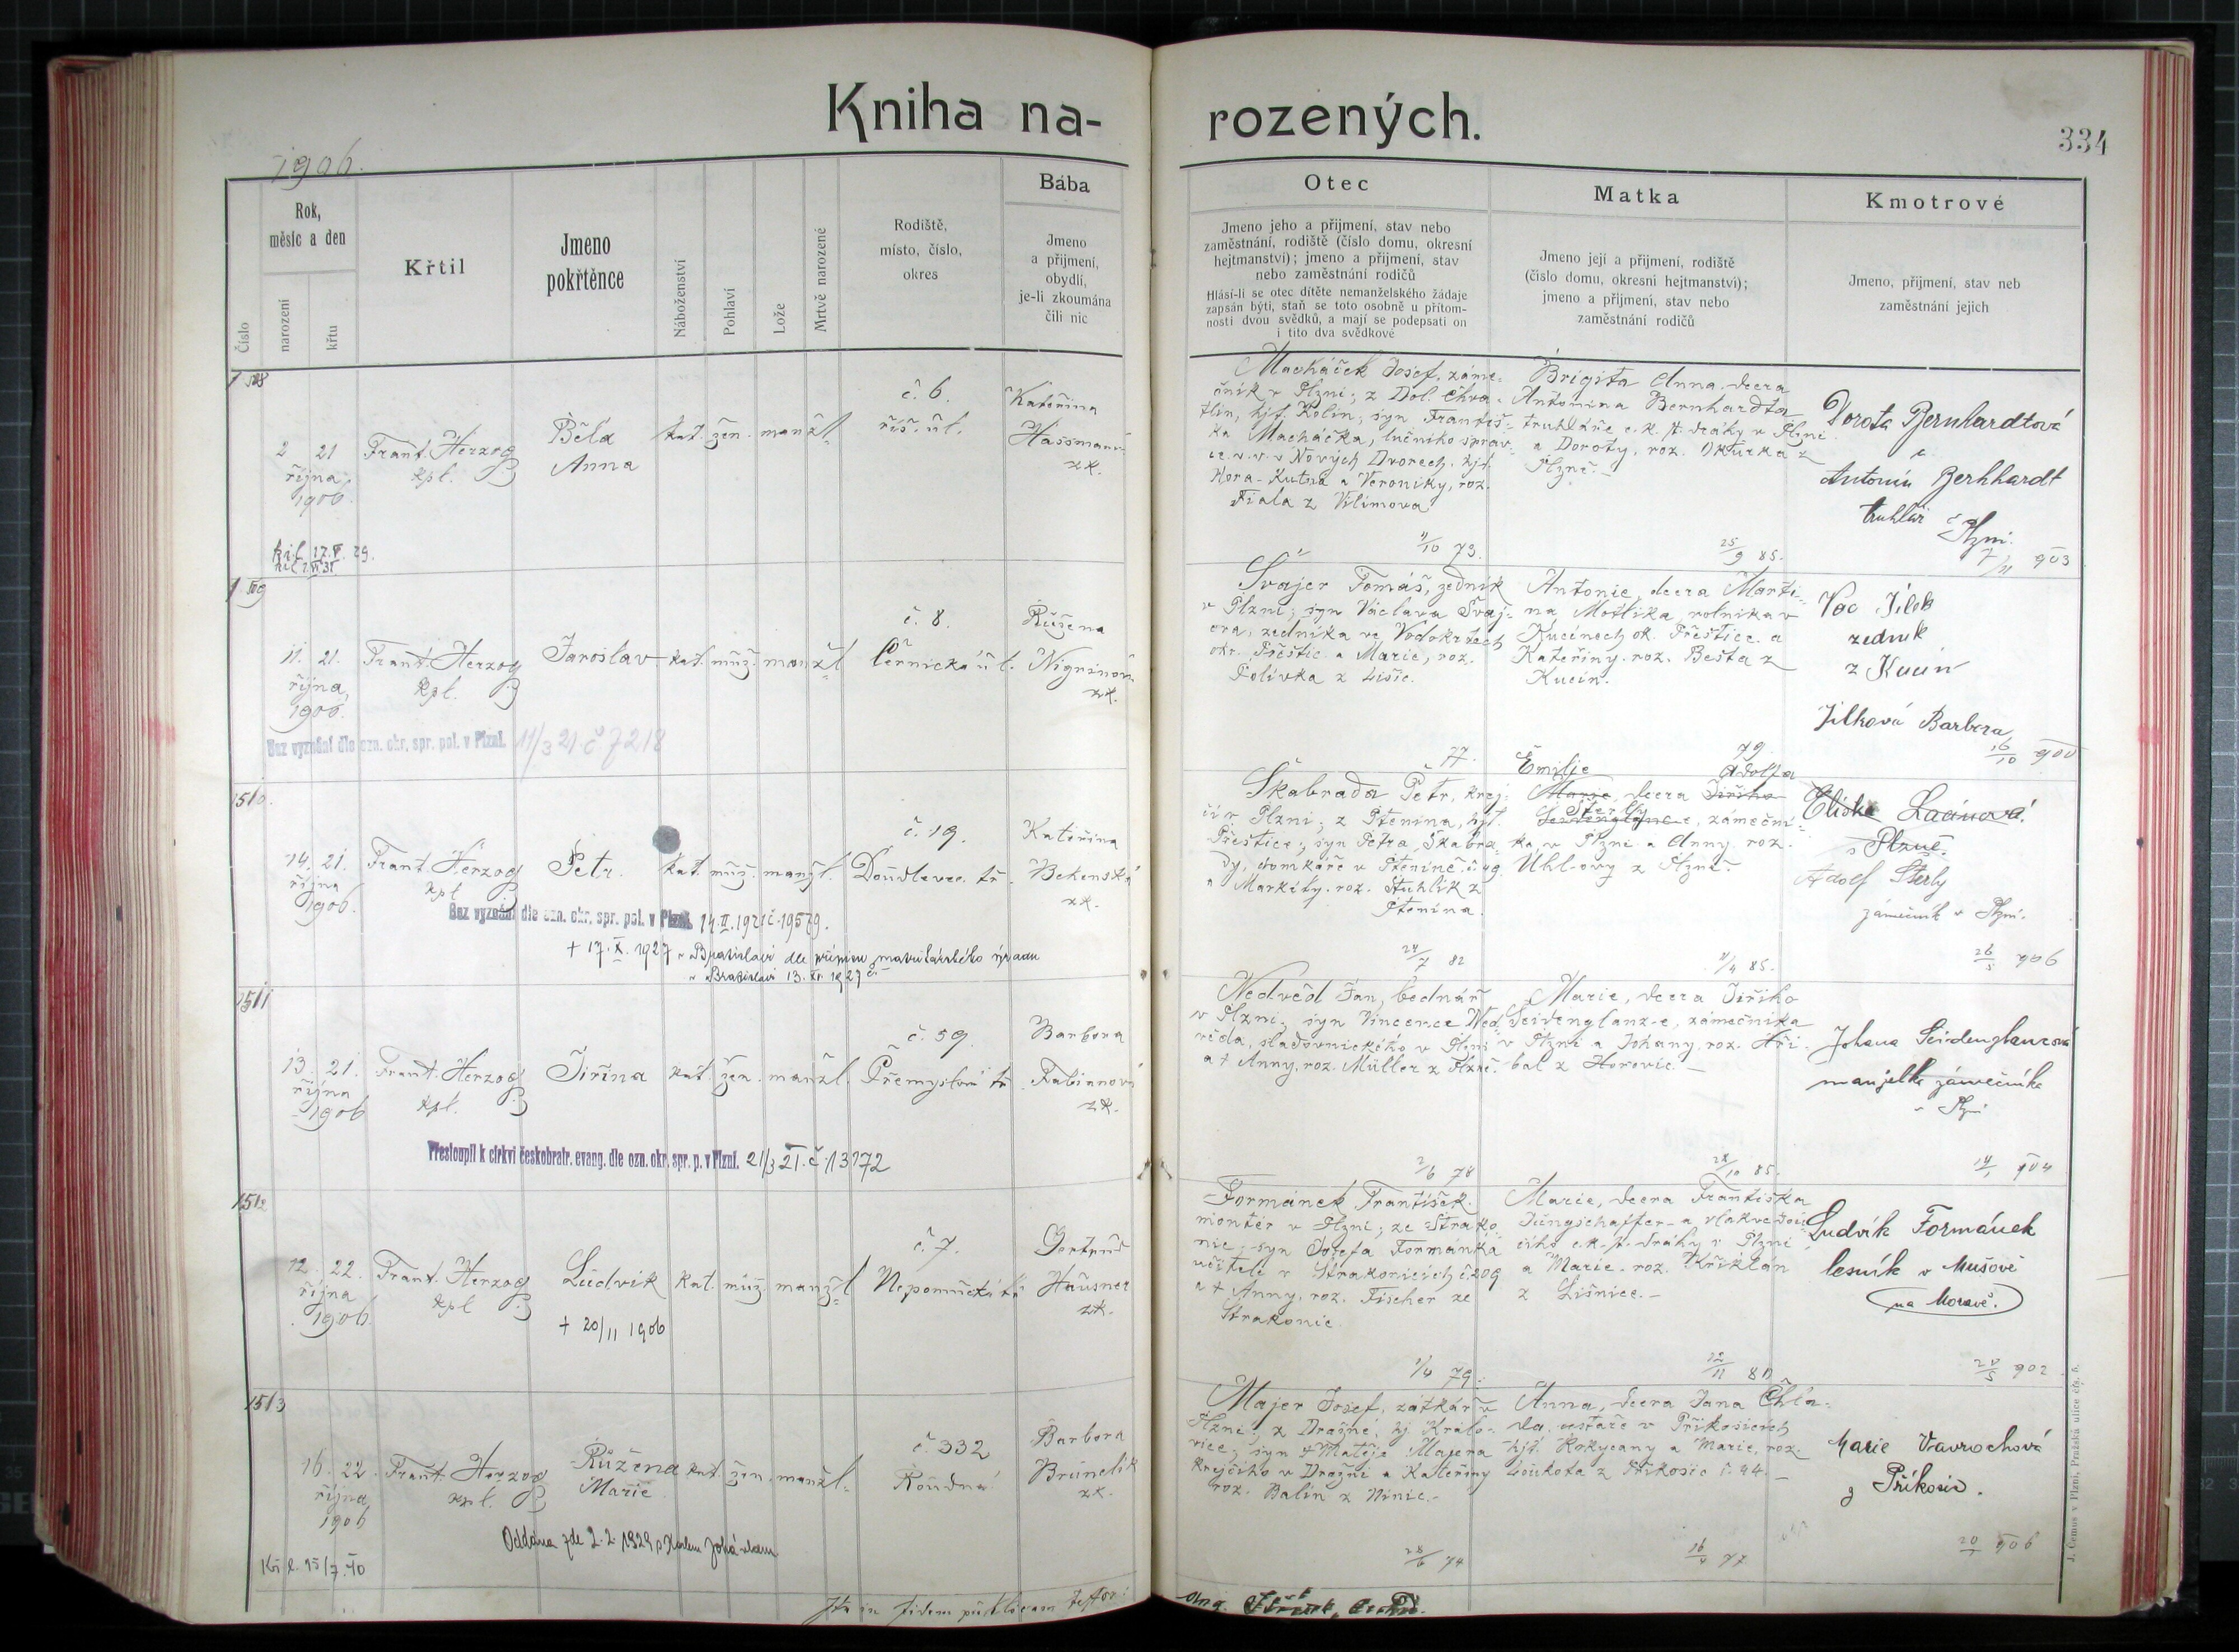 Kniha na-
rozených.
334
1906.
Číslo
Rok,
měsíc a den
narození
křtu
Křtil
Jmeno
pokřtěnce
Náboženství
Pohlaví
Lože
Mrtvě narozené
Rodiště,
místo, číslo,
okres
Bába
Jmeno
a příjmení,
obydlí,
je-li zkoumána
čili nic
Otec
Jmeno jeho a příjmení, stav nebo
zaměstnání, rodiště (číslo domu, okresní
hejtmanství); jmeno a příjmení, stav
nebo zaměstnání rodičů
Hlásí-li se otec dítěte nemanželského žádaje
zapsán býti, staň se toto osobně u přítom-
nosti dvou svědků, a mají se podepsati on
i tito dva svědkové
Matka
Jmeno její a příjmení, rodiště
(číslo domu, okresní hejtmanství);
jmeno a příjmení, stav nebo
zaměstnání rodičů
Kmotrové
Jmeno, příjmení, stav neb
zaměstnání jejich
1508
2 21
října
1906.
Frant. Herzog
kpl.
Běla
Anna
kat. žen. manžl.
č. 6.
říš. ul.
Kateřina
zk.
Macháček Josef, záme-
čník v Plzni; z Dol. Chva-
tlin, hjt. Kolín; syn Františ-
ka Macháčka, lučního správ-
ce v. v. v Nových Dvorech, hjt.
Hora-Kutná a Veroniky, roz.
Fiala z Vilimova
11/10 73.
Brigita Anna, dcera
Antonína Bernhardta
truhláře c. k. st. dráhy v Plzni
a Doroty, roz.
Plzně.
25/9 85.
Dorota Bernhardtová
Antonín Bernhardt
truhlář v Plzni.
7/11 903
1509
11. 21.
října,
1906.
Frant. Herzog
kpl.
Jaroslav
kat. muž. manžl.
č. 8.
Černická ul.
Růžena
zk.
Bez vyznání dle ozn. okr. spr. pol. v Plzni. 11/3 21 č 7218
Švajer Tomáš, zedník
v Plzni; syn Václava Švaj-
era, zedníka ve Vodokrtech
okr. Přeštic. a Marie, roz.
Polívka z Lišic.
77.
Antonie, dcera Marti-
na Motlíka, rolníka v
Kucínech ok. Přeštice a
Kateřiny, roz. Bešta z
Kucín.
79.
Vac Jílek
zedník
z Kucín
Jílková Barbora
16/10 900
1510.
14. 21.
října
1906.
Frant. Herzog
kpl
Petr.
kat. muž. manžl.
č. 19.
Doudlevec. tř.
Kateřina
zk.
Bez vyznání dle ozn. okr. spr. pol. v Plzni. 14.II.1921 č. 19579.
+ 17. X. 1927 v Bratislavě dle přípisu matrikárského úřadu
v Bratislavě 13. XI. 1929
Škabrada Petr, krej-
čí v Plzni; z Ptenína, hjt.
Přeštice; syn Petra Škabra-
dy, domkáře v Pteníně č. 49.
a Markéty, roz. Stuhlík z
Ptenína.
24/7 82
Emilie Adolfa
Marie, dcera Jiřího
Šterly
Seidenglanz-e, zámeční-
ka, v Plzni a Anny roz.
Uhl-ovy z Plzně.
4/4 85.
Eliška Lacinová
v Plzni.
Adolf Šterly
zámečník v Plzni.
26/5 906
1511
13. 21.
října
1906
Frant. Herzog
kpl.
Jiřina
kat. žen. manžl.
č. 59.
Přemyslova tř.
Barbora
Fabianová
zk.
Přestoupil k církvi českobratr. evang. dle ozn. okr. spr. p. v Plzni. 21/3 21. č. 13172
Nedvěd Jan, bednář
v Plzni; syn Vincence Ned-
věda, sladovnického v Plzni
a + Anny, roz. Müller z Plzně.
2/6 78
Marie, dcera Jiřího
Seidenglanz-e, zámečníka
v Plzni a Johany, roz. Hři-
bal z Hořovic.
28/10 85.
Johana Seidenglanzová
manželka zámečníka
v Plzni
14/1 904
1512
12. 22.
října
1906.
Frant. Herzog
kpl
Ludvík
kat. muž. manžl
č. 7.
Nepomucká tř.
Gertrud
Hausner
zk.
+ 20/11 1906
Formánek František
montér v Plzni; ze Strako-
nic; syn Josefa Formánka
učitele v Strakonicích č. 209
a + Anny, roz. Fischer ze
Strakonic.
1/4 79.
Marie, dcera Františka
Jungschaffer-a vlakvedou-
cího c. k. st. dráhy v Plzni
a Marie, roz. Křižtán
z Lišnice.
12/11 80
Ludvík Formánek
lesník v Mušově
na Moravě.
20/5 902
1513
16. 22.
října
1906
Frant. Herzog
kpl.
Růžena
Marie
kat. žen. manžl.
č. 332
Roudná
Barbora
Brunclík
zk.
Oddána zde 2. 2. 1929 s Karlem
15/7.40
Majer Josef, zátkář v
Plzni; z Dražné, hj. Kralo-
vice; syn + Matěje Majera
krejčího v Dražni a Kateřiny
roz. Balín z Nínic.
28/6 74
Anna, dcera Jana Chla-
da, pastýře v Příkosicích
hjt. Rokycany a Marie, roz.
Loukota z Příkosic č. 44.
16/4 77
Marie Vavrochová
z Příkosic.
20/1 906
Ita in fidem publicam testor:
J. Čermus v Plzni, Pražská ulice čis. 5.